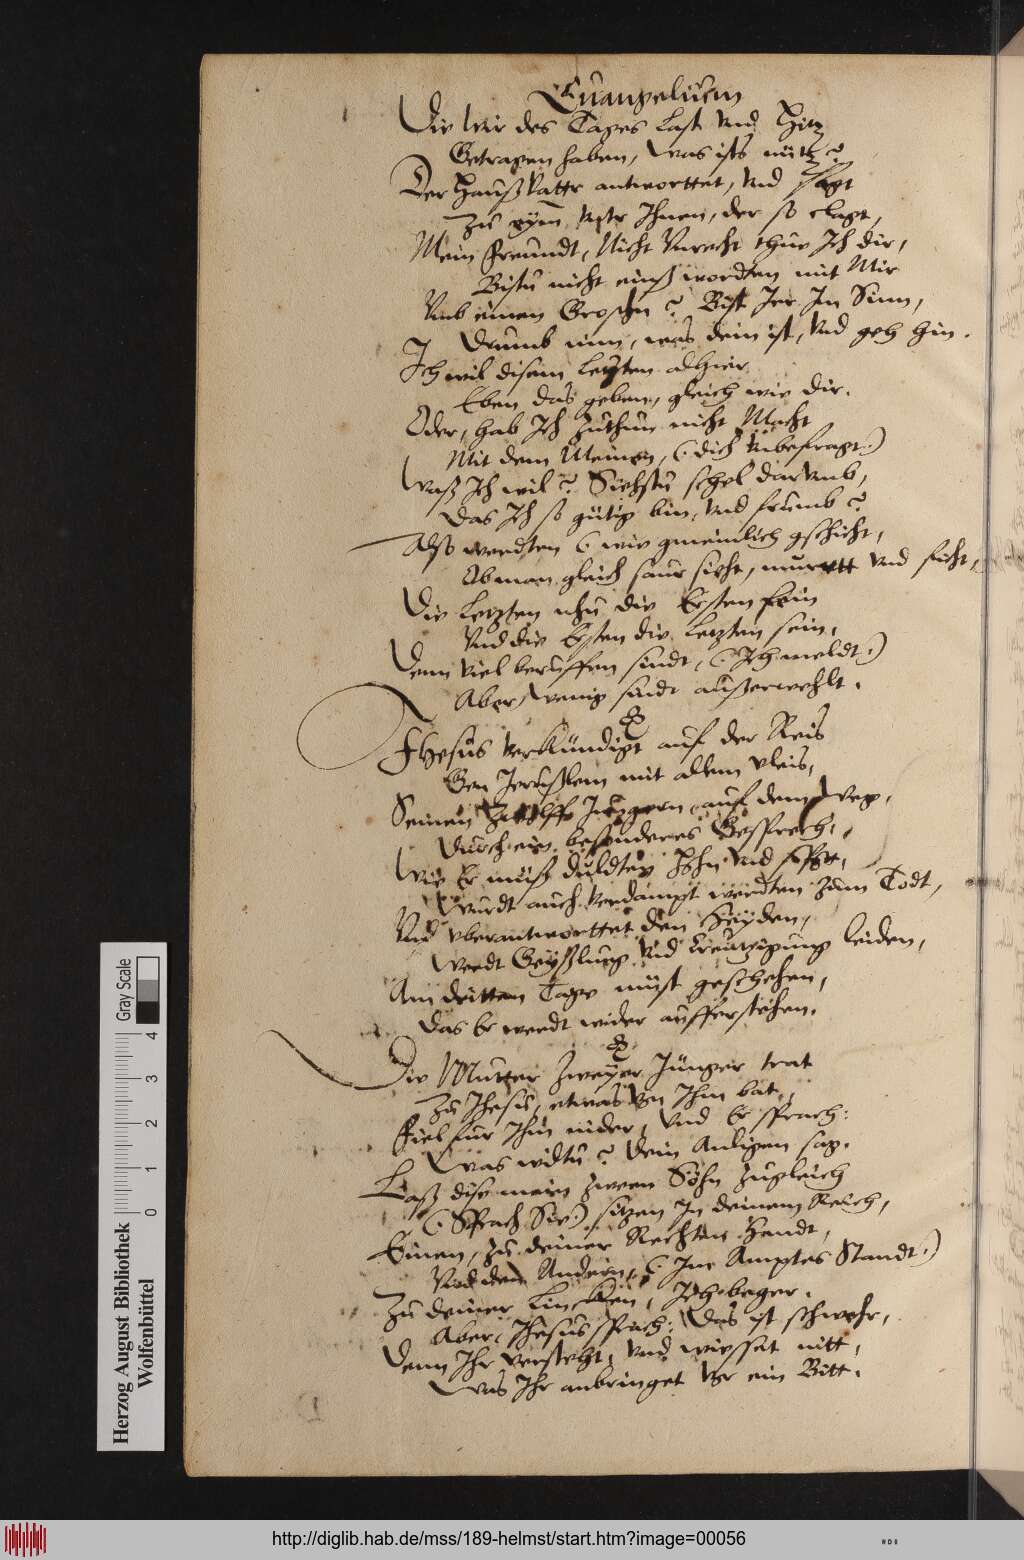 Euangelium
Die wir des Tages Last vnd Hitz
Getragen haben, was ists nütz?
Der Haußvattr antworttet, vnd sagt
Zu eym vntr Ihnen, der so clagt,
Mein freundt, Nicht Vnrecht thue Ich dir,
Bistu nicht einß wordten mit Mir
Vmb einen Groschn? Bist Irr Im Sinn,
Drumb nim, was dein ist, vnd geh hin.
Ich wil disem Letzten alhier
Eben das geben, gleich wie dir.
Oder, hab Ich zuthun nicht Macht
Mit dem Meinen, (dich vnbefragt)
Waß Ich wil? Siehstu schel darumb,
Das Ich so gütig bin, vnd frumb?
Also werdten (wie gmeinlich gschicht,
Ob man gleich saur sieht, murrtt vnd ficht,
Die Letzten die Ersten sein
Vnd die Ersten die Letzten sein,
Denn viel beruffen sindt, (Ich meldt)
Aber wenig sindt außerwehlt.
Jhesus verkündigt auf der Reis
Gen Jerusalem mit allem vleis,
Seinen Zwölff Jüngern auf dem Weg,
Durch ein besonderes Gesprech,
Wie Er muß duldten Hohn vnd Spott,
Wurdt auch verdampt werdten zum Todt,
Vnd vberantworttet den Heyden,
Werdt Geyßlung vnd Creutzigung leiden,
Am dritten Tage must geschehen,
Das Er werdt wider aufferstehen.
Die Mutter Zweyer Jünger trat
Zu Jhesu, etwas von Ihm bat,
Fiel für Ihm nider, vnd Er sprach:
Was wiltu? dein Anligen sag.
Laß dise mein zween Söhn zugleich
(Sprach Sie) sitzen In deinem Reich,
Einen, zu deiner Rechten Handt,
Vnd den Andern, (Im Amptes Standt)
Zu deiner Lincken, Ich beger.
Aber Jhesus sprach: Das ist schwehr,
Denn Ihr versteht, vnd wisset nitt,
Was Ihr anbringet vor ein Bitt.
Gray Scale
0 1 2 3 4
Herzog August Bibliothek
Wolfenbüttel
http://diglib.hab.de/mss/189-helmst/start.htm?image=00056